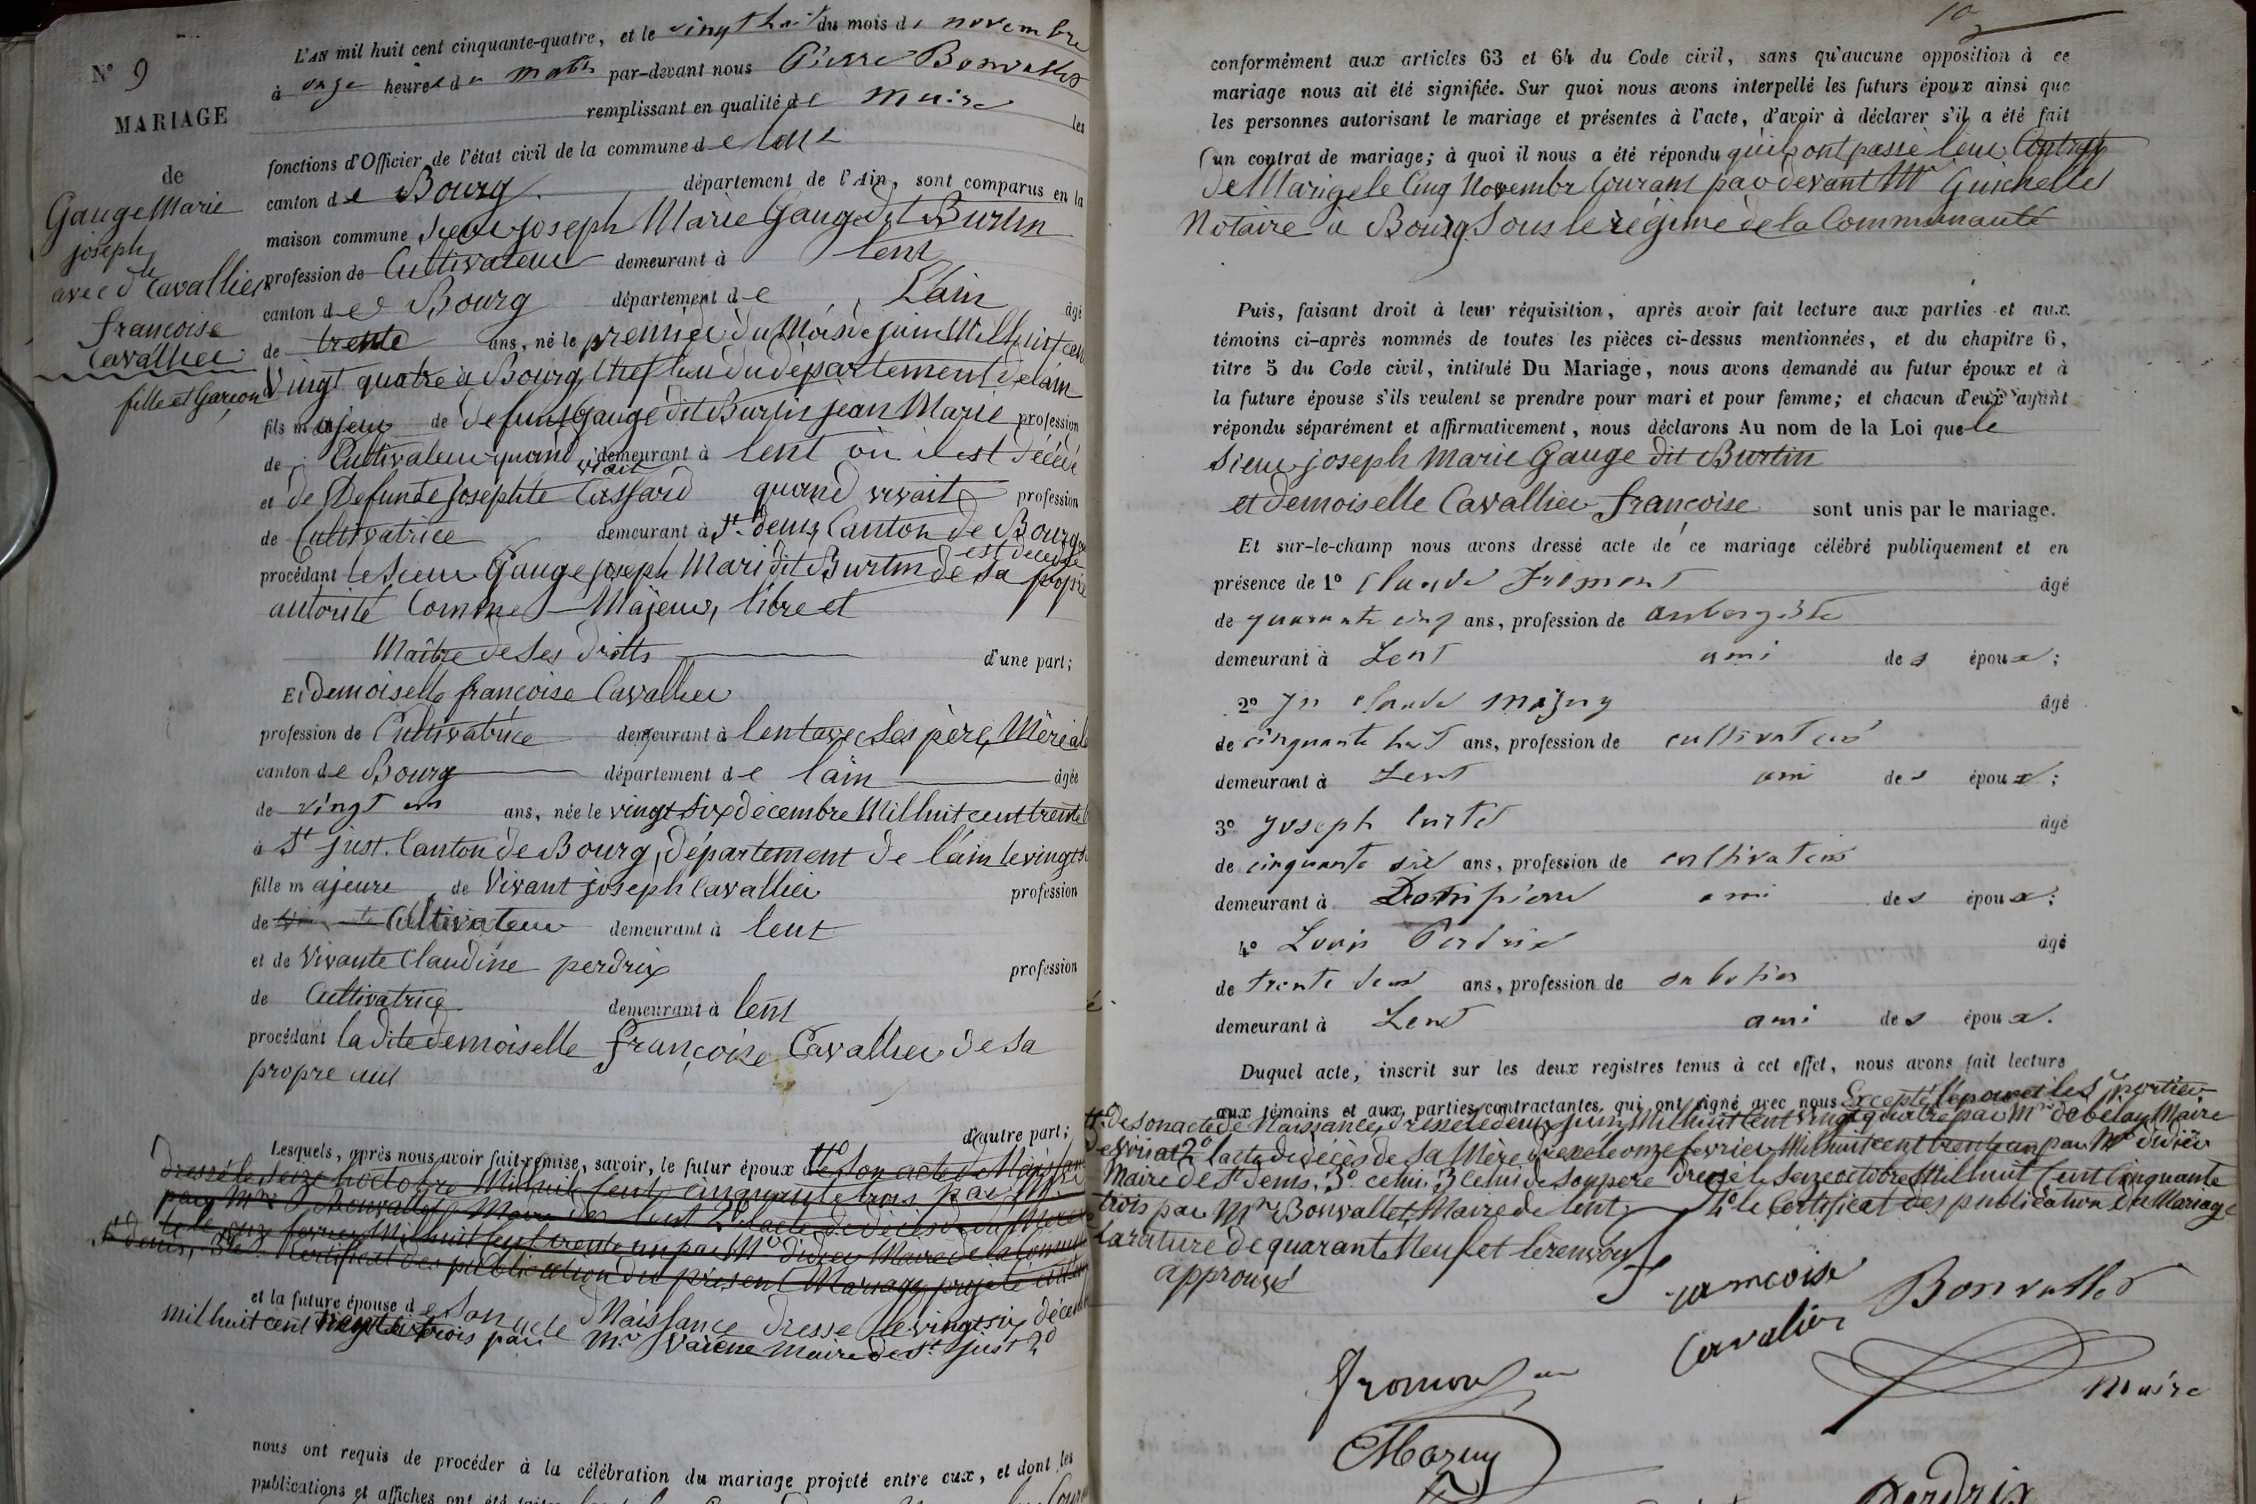 N° 9
MARIAGE
de
Gauge Marie
joseph
avec dlle Cavallier
françoise
Cavallier
fille et Garçon
L'AN mil huit cent cinquante-quatre, et le vingt huit du mois de novembre
à onze heures du matin par-devant nous Pierre Bonvallet
remplissant en qualité de Maire les
fonctions d'Officier de l'état civil de la commune de Lent
canton de Bourg département de l'Ain, sont comparus en la
maison commune Sieur joseph Marie Gauge dit Burtin
profession de Cultivateur demeurant à lent
canton de Bourg département de L'ain âgé
de trente ans, né le premier du Mois de juin Mil huit cent
Vingt quatre à Bourg, Chef lieu du département de l'ain
fils majeur de defunt Gauge dit Burtin jean Marie profession
de Cultivateur quand vivait demeurant à lent où il est décédé
et de Defunte josephte Cassard quand vivait profession
de Cultivatrice demeurant à St denis Canton de Bourg
est décédée
procédant le sieur Gauge joseph Mari dit Burtin de sa propre
autorité Comme Majeur, libre et
Maître de ses droits d'une part;
Et demoiselle françoise Cavallier
profession de Cultivatrice demeurant à lent avec ses père, Mère
canton de Bourg département de l'ain âgée
de vingt un ans, née le vingt six décembre Mil huit cent trente
à St just. Canton de Bourg, département de l'ain le vingt
fille majeure de Vivant joseph Cavallier profession
de Cultivateur demeurant à lent
et de Vivante Claudine perdrix profession
de Cultivatrice demeurant à lent
procédant la dite demoiselle françoise Cavallier de sa
propre aut
d'autre part;
Lesquels, après nous avoir fait remise, savoir, le futur époux de son acte de Naissance
dressé le seize octobre Mil huit Cent cinquante trois par Mr
par Mr Bonvallet Maire de lent 2° l'acte de décès de sa Mère
le onze fevrier Mil huit Cent trente un par Mr didier Maire de la Commune
St denis, Certificat des publication du présent Mariage projeté
et la future épouse de son acte d Naissance dresse le vingt six décembre
mil huit cent trente trois par Mr Maire de St just 2°
nous ont requis de procéder à la célébration du mariage projeté entre eux, et dont les
publications et affiches ont été faites
10
conformément aux articles 63 et 64 du Code civil, sans qu'aucune opposition à ce
mariage nous ait été signifiée. Sur quoi nous avons interpellé les futurs époux ainsi que
les personnes autorisant le mariage et présentes à l'acte, d'avoir à déclarer s'il a été fait
un contrat de mariage; à quoi il nous a été répondu qu'ils ont passé leur Contrat
de Marige le Cinq Novembr Courant par devant Mr Guichellet
Notaire à Bourg Sous le régime de la Communauté
Puis, faisant droit à leur réquisition, après avoir fait lecture aux parties et aux
témoins ci-après nommés de toutes les pièces ci-dessus mentionnées, et du chapitre 6,
titre 5 du Code civil, intitulé Du Mariage, nous avons demandé au futur époux et à
la future épouse s'ils veulent se prendre pour mari et pour femme; et chacun d'eux ayant
répondu séparément et affirmativement, nous déclarons Au nom de la Loi que le
Sieur joseph Marie Gauge dit Burtin
et demoiselle Cavallier françoise sont unis par le mariage.
Et sur-le-champ nous avons dressé acte de ce mariage célébré publiquement et en
présence de 1° Claude Fromont âgé
de quarante cinq ans, profession de aubergiste
demeurant à Lent ami des époux;
2° Jn Claude Mazuy âgé
de cinquante huit ans, profession de cultivateur
demeurant à Lent ami des époux;
3° Joseph Curtet âgé
de cinquante six ans, profession de cultivateur
demeurant à Dompierre ami des époux;
4° Louis Perdrix âgé
de trente deux ans, profession de
demeurant à Lent ami des époux.
Duquel acte, inscrit sur les deux registres tenus à cet effet, nous avons fait lecture
aux témoins et aux parties contractantes, qui ont signé avec nous Excepté l'époux et le Sr
1° De son acte de Naissance, dressé le deux juin Mil huit Cent vingt quatre par Mr Maire
2° l'acte de décès de sa Mère dressé le onze fevrier Mil huit cent trente un par Mr didier
Maire de St denis, 3° celui de son père dressé le seize octobre Mil huit Cent Cinquante
trois par Mr Bonvallet Maire de lent, 4° le Certificat des publication du Mariage
la rature de quarante Neuf et le renvoi
approuvé
françoise
Cavalier
Bonvallet
Maire
Fromont
Mazuy
Perdrix